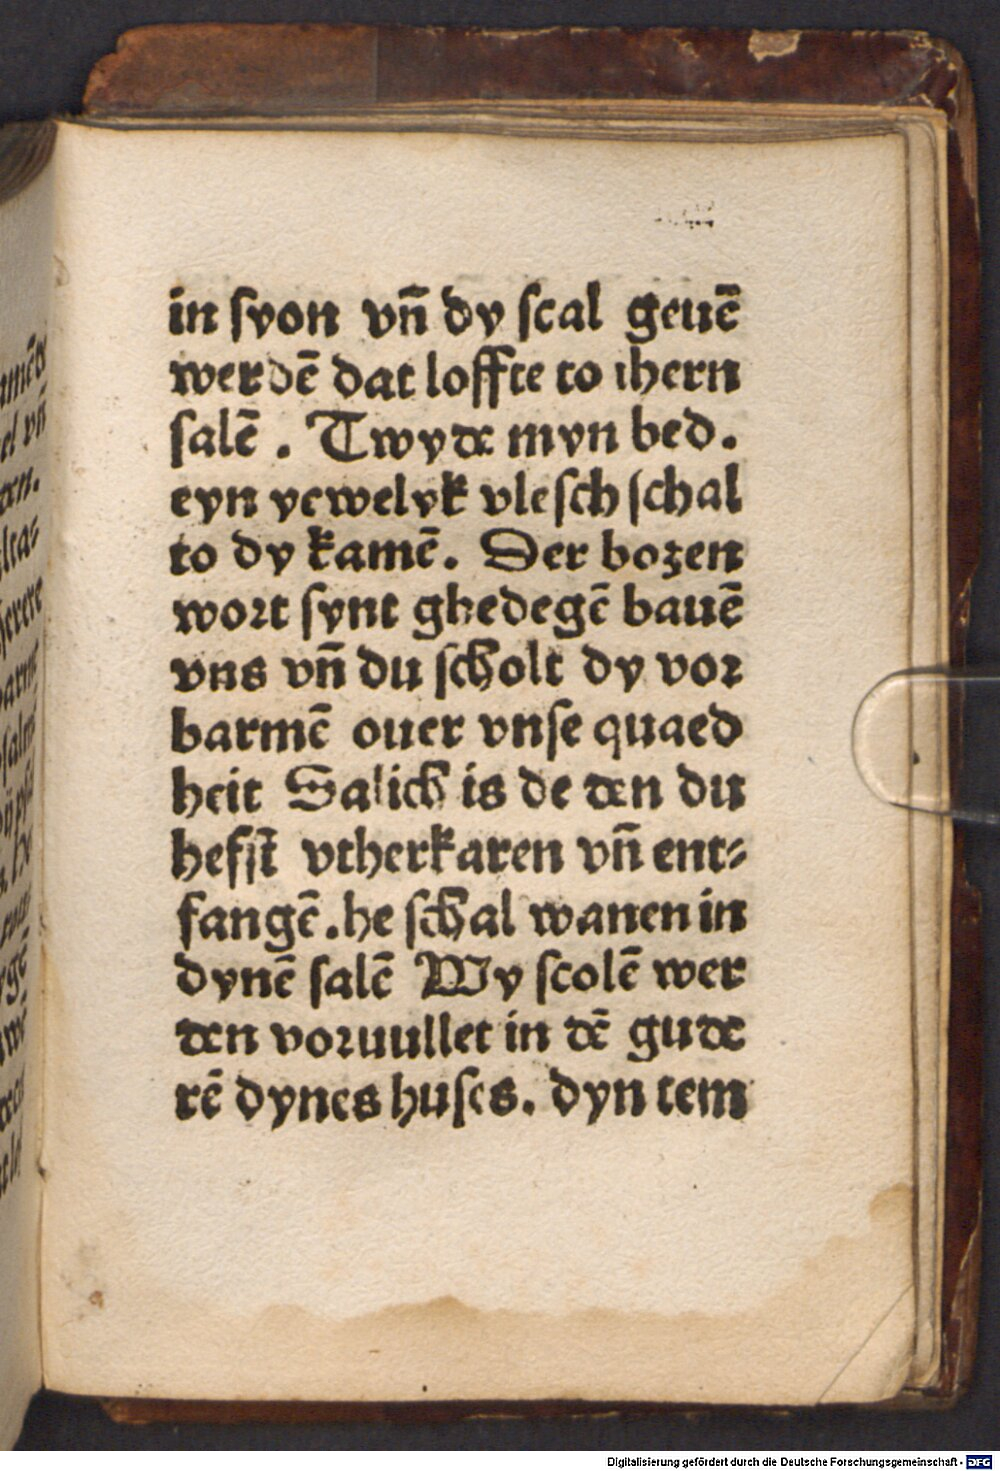 in syon vn̄ dy scal geuē
werdē dat loffte to ihern
salē . Twyde myn bed.
eyn yewelyk vlesch schal
to dy kamē. Der bozen
wort synt ghedegē bauē
vns vn̄ du scholt dy vor
barmē ouer vnse quaed
heit Salich is de den du
hefst vtherkaren vn̄ ent⸗
fangē.he schal wanen in
dynē salē Wy scolē wer
den voruullet in dē gude
rē dynes huses. dyn tem
Digitalisierung gefördert durch die Deutsche Forschungsgemeinschaft - DFG